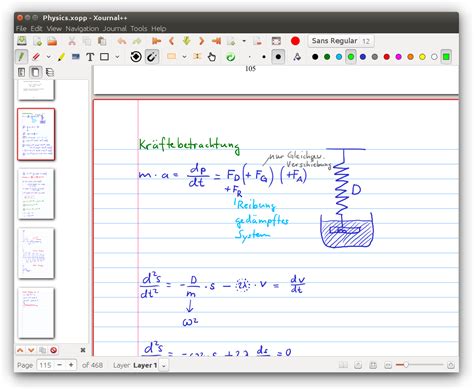 Physics.xopp - Xournal++
File Edit View Navigation Journal Tools Help
Sans Regular 12
105
Kräftebetrachtung
nur Gleichgew.
Verschiebung
m · a = dp/dt = F_D (+ F_G) (+F_A)
+ F_R
D
Reibung
gedämpftes
System
d²s/dt² = - D/m · s - 2λ · v = dv/dt
ω²
d²s + ω²s + 2λ ds = 0
Page 115 of 468 Layer Layer 1